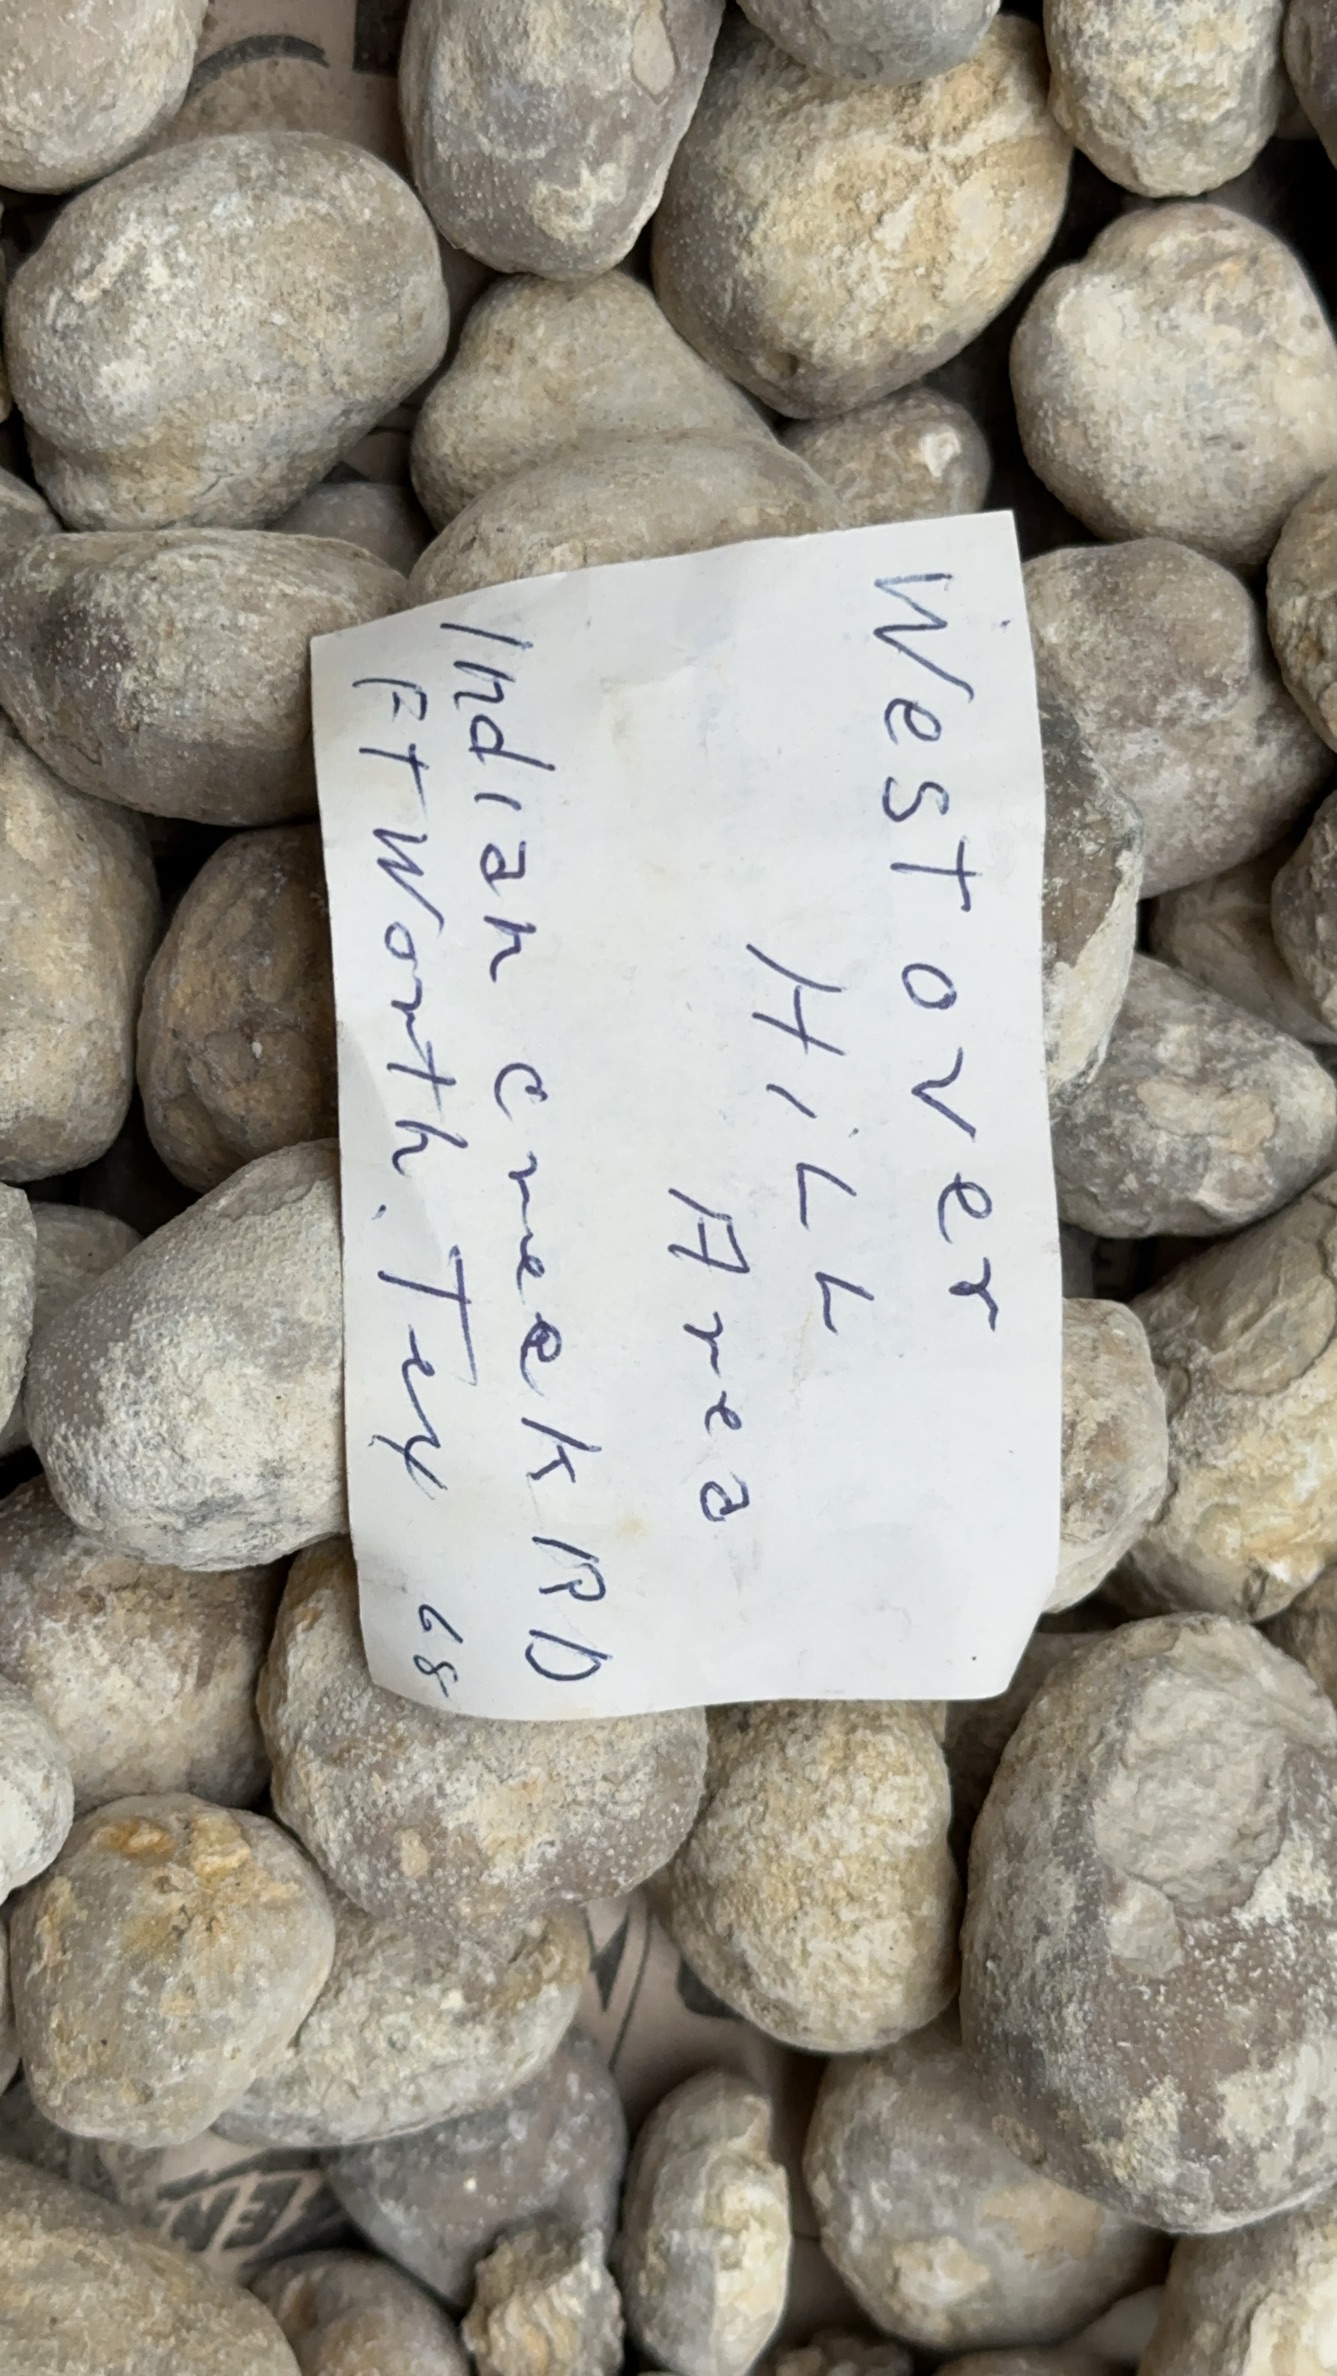 Westover
HiLL
Area
Indian creek RD
Ft Worth. Tex 68